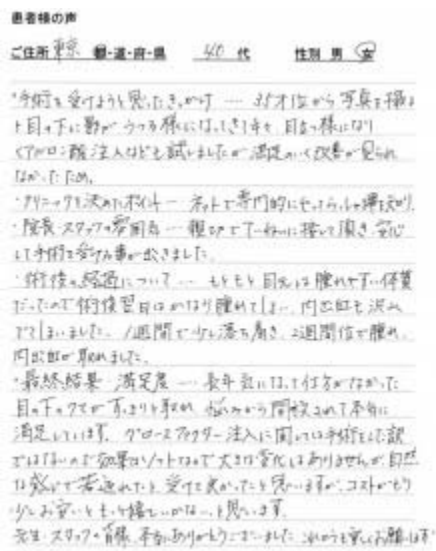 患者様の声
ご住所 東京 都・道・府・県 40 代 性別 男 女
・手術を受けようと思ったきっかけ … 35才位から写真を撮る
と目の下に影がうつる様になってきて年々目立つ様になり
ヒアルロン酸注入なども試しましたが満足のいく改善が見られ
なかったため。
・クリニックを決めたポイント … ネットで専門的にやってらっしゃる事を知り
・院長・スタッフの雰囲気 … 親切でていねいに接して頂き、安心
して手術を受ける事が出来ました。
・術後の経過について … もともと目元は腫れやすい体質
だったので術後翌日はかなり腫れてしまい、内出血も沢山
でてしまいました。1週間で少し落ち着き、2週間位で腫れ、
内出血が取れました。
・最終結果 満足度 … 長年気になって仕方がなかった
目の下のクマがすっきり取れ 悩みから開放されて本当に
満足しています。グロースファクター注入に関しては手術をした訳
ではないので効果はソフトなので大きな変化はありませんが、自然
な感じで若返れたし 受けて良かったと思いますが、コストがもう
少しお安いともっと嬉しいかな、と思います。
先生・スタッフの皆様、本当にありがとうございました。これからも宜しくお願いします